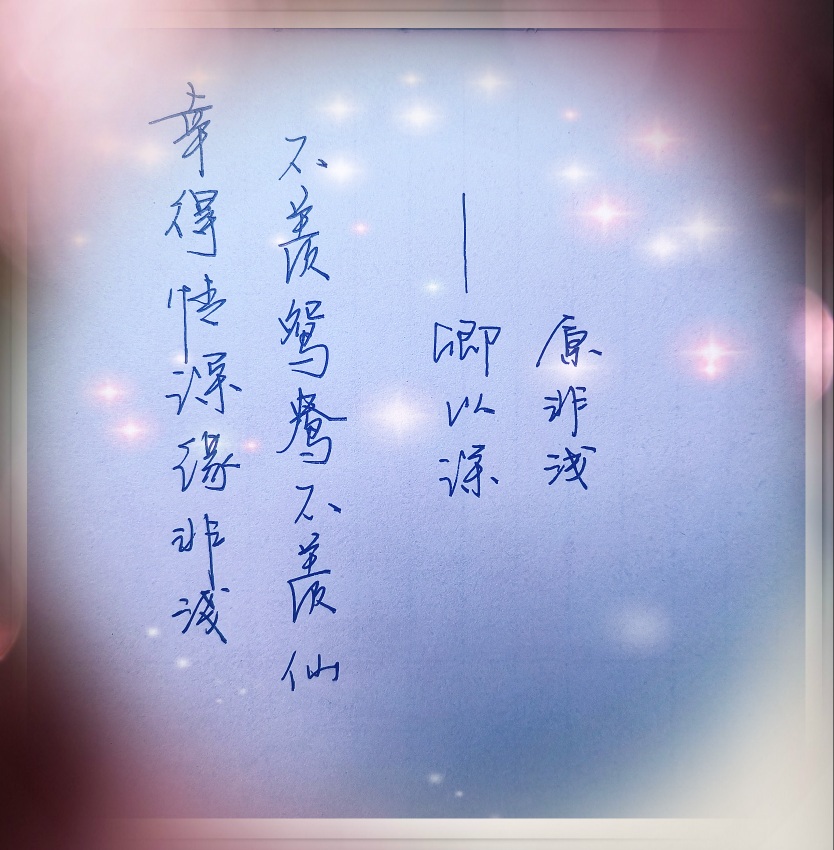 幸得情深缘非浅
不羡鸳鸯不羡仙
——卿以深
原非浅